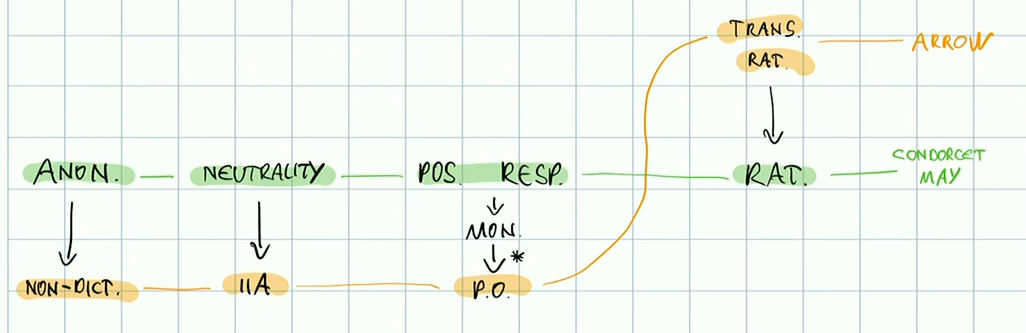 TRANS.
RAT.
ARROW
ANON.
NEUTRALITY
POS. RESP.
RAT.
CONDORCET
MAY
MON.
*
NON-DICT.
IIA
P.O.